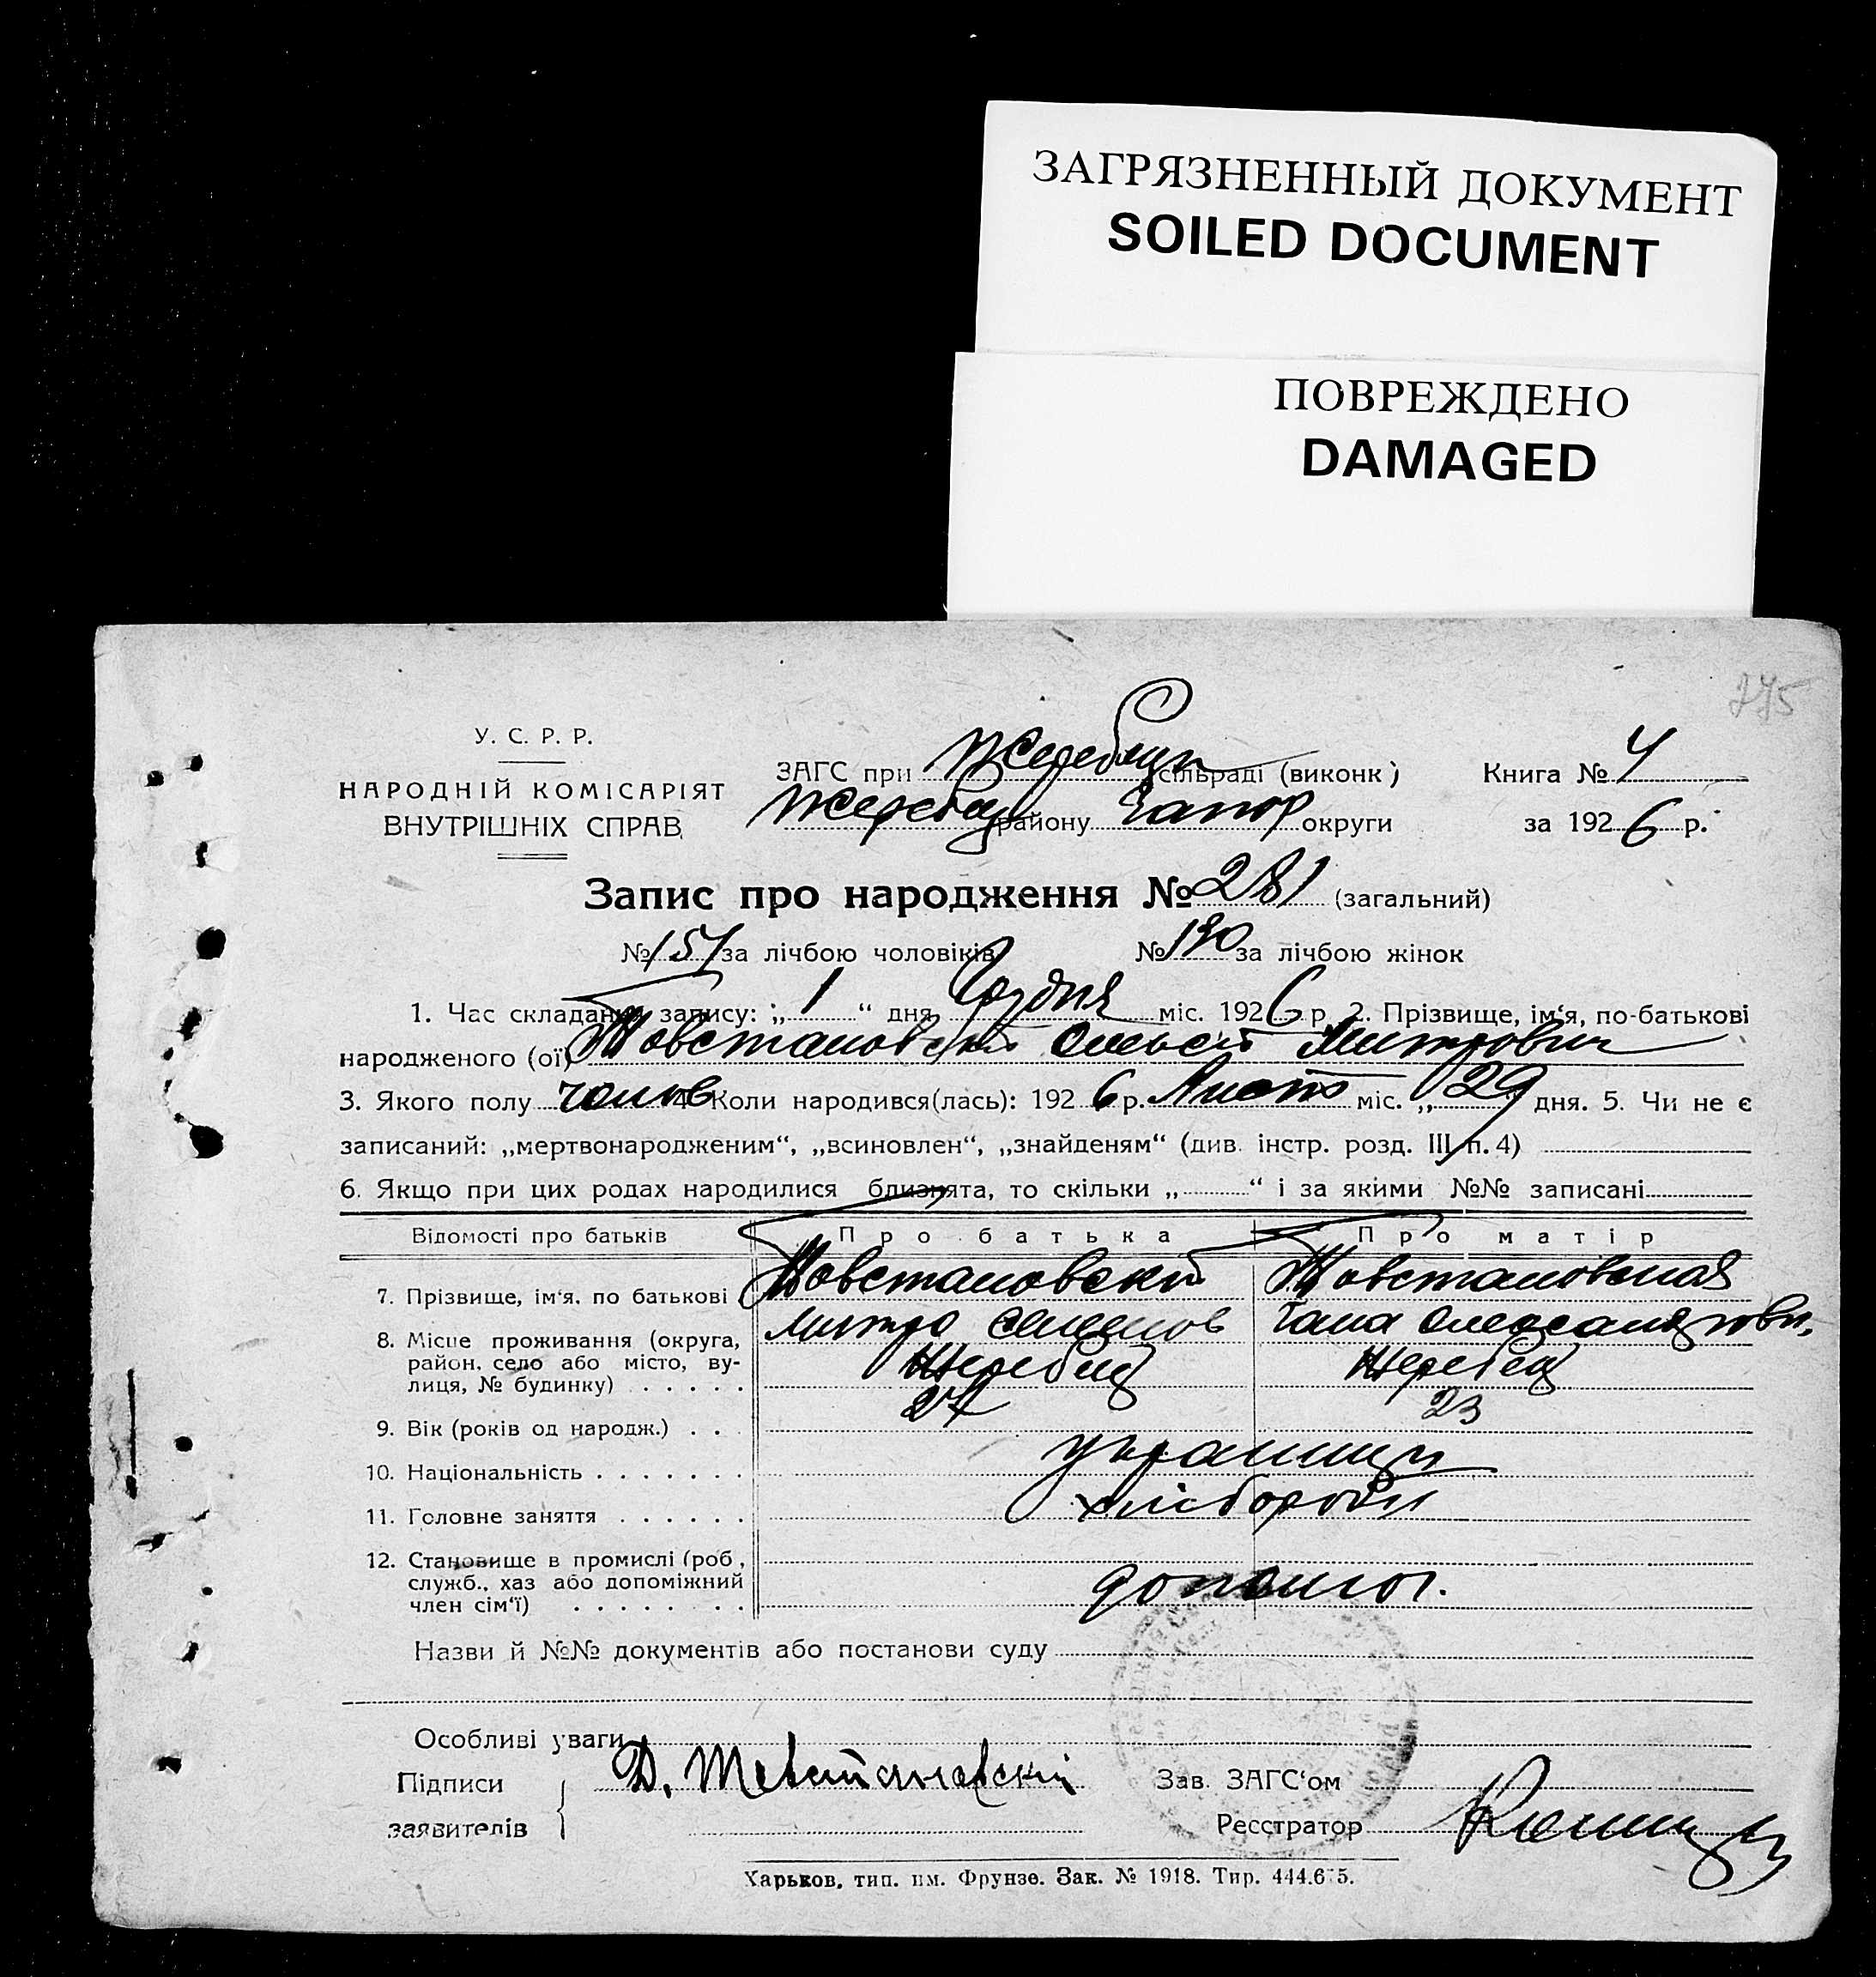 ЗАГРЯЗНЕННЫЙ ДОКУМЕНТ
SOILED DOCUMENT
ПОВРЕЖДЕНО
DAMAGED
275
У. С. Р. Р.
НАРОДНІЙ КОМІСАРІЯТ
ВНУТРІШНІХ СПРАВ
ЗАГС при Жеребецк сільраді (виконк) Книга № 4
Жеребец району Запор округи за 1926 р.
Запис про народження № 281 (загальний)
№ 151 за лічбою чоловіків № 130 за лічбою жінок
1. Час складання запису: „1“ дня Грудня міс. 1926 р. 2. Прізвище, ім'я, по-батькові
народженого (ої) Товстановский Олексій Митрович
3. Якого полу чолов. 4. Коли народився(лась): 1926 р. Листо міс. „29 дня. 5. Чи не є
записаний: „мертвонародженим“, „всиновлен“, „знайденям“ (див. інстр. розд. III п. 4)
6. Якщо при цих родах народилися близнята, то скільки „ “ і за якими №№ записані
Відомості про батьків Про батька Про матір
7. Прізвище, ім'я, по батькові Товстановский Товстановская
Митро Семенов Гана Олександрови.
8. Місце проживання (округа, район, село або місто, ву-лиця, № будинку) Жеребец Жеребец
9. Вік (років од народж.) 27 23
10. Національність українці
11. Головне заняття хлібороби
12. Становище в промислі (роб., служб., хаз або допоміжний член сім'ї) допомог.
Назви й №№ документів або постанови суду
Особливі уваги
Підписи заявителів Д. Товстановский Зав. ЗАГС'ом
Реєстратор
Харьков, тип. им. Фрунзе. Зак. № 1918. Тир. 444.675.